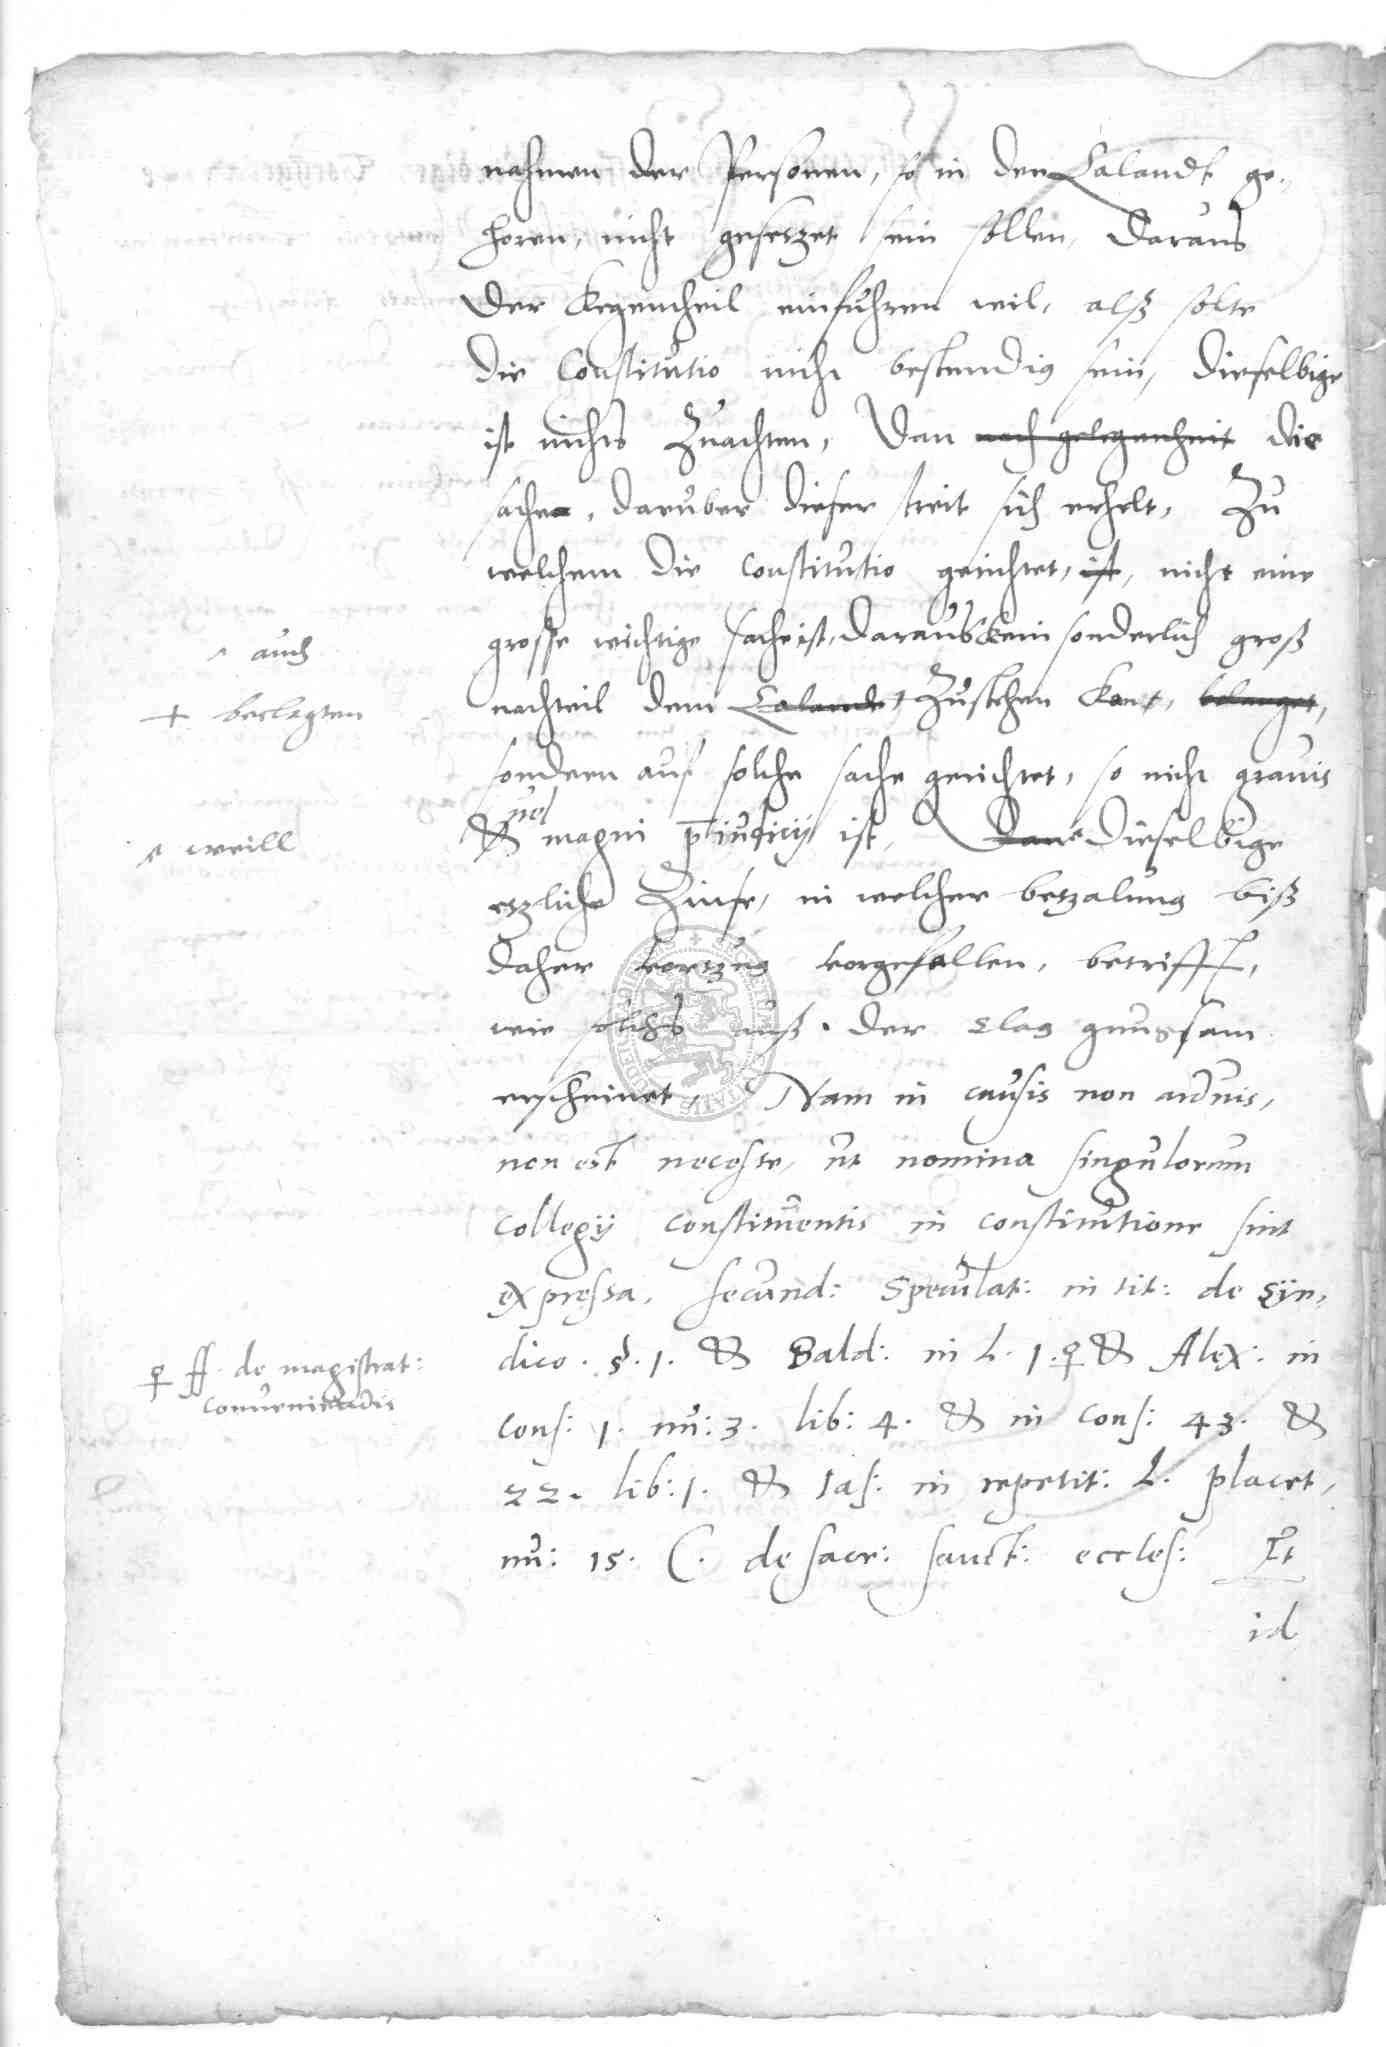 nahmen der Personen, so in den Calandt ge-
horen, nicht gesetzet sein sollen, daraus
der kegentheil einfuhren wil, alß solte
die Constitutio nicht bestendig sein, dieselbige
ist nichts zuachten, Dan nach gelegenheit die
sache, daruber dieser streit sich erhelt, Zu
welchem die constitutio gerichtet, ist, nicht eine
grosse wichtige sache ist, daraus kein sonderlich groß
^ auch
nachteil dem Calande, zustehen kan, belanget,
+ beclagten
sondern auf solche sache gerichtet, so nicht grauis
vel
& magni p̄iudicij ist, Dan dieselbige
^ weill
etzliche Zinse, in welcher betzalung biß
daher vortzug vorgefallen, betrifft,
wie solchs auß der clag gnugsam
erscheinet, Nam in causis non arduis,
non est necesse, ut nomina singulorum
collegij constituentis in constitutione sint
expressa, secund: Speculat: in tit: de Syn-
dico. §. 1. & Bald: in L. 1. & Alex: in
ff. de magistrat:
conueniendis
cons: 1. nu: 3. lib: 4. & in cons: 43. &
22. lib: 1. & Ias: in repetit: L. placet,
nu: 15. C. de sacr: sanct: eccles: Et
id